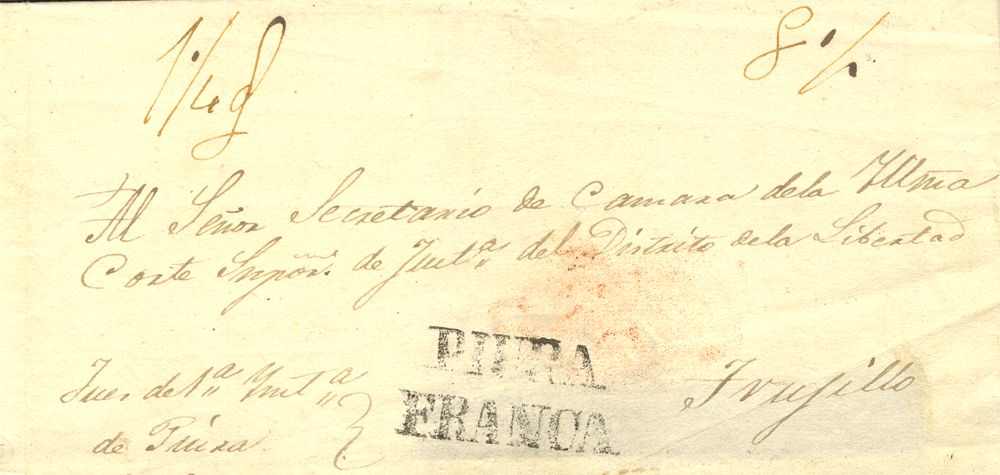 8 ·/.
Al Señor Secretario de Camara dela Yllma
Corte Supor. de Just.a del Distrito dela Libertad
PIURA
FRANCA
Trujillo
Jues de 1.a Ynst.a
de Piura